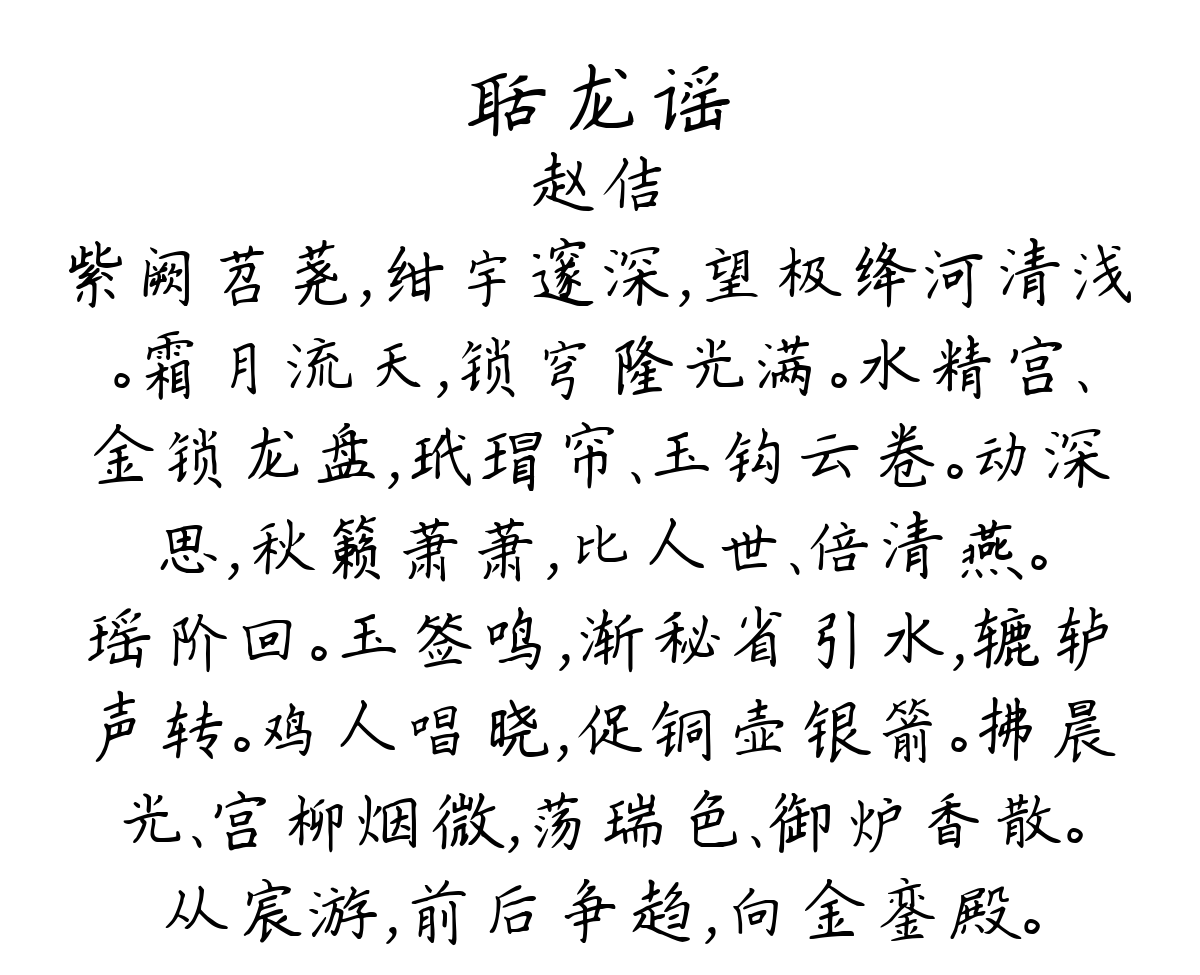 聒龙谣
赵佶
紫阙苕荛,绀宇邃深,望极绛河清浅
。霜月流天,锁穹隆光满。水精宫、
金锁龙盘,玳瑁帘、玉钩云卷。动深
思,秋籁萧萧,比人世、倍清燕。
瑶阶回。玉签鸣,渐秘省引水,辘轳
声转。鸡人唱晓,促铜壶银箭。拂晨
光、宫柳烟微,荡瑞色、御炉香散。
从宸游,前后争趋,向金銮殿。